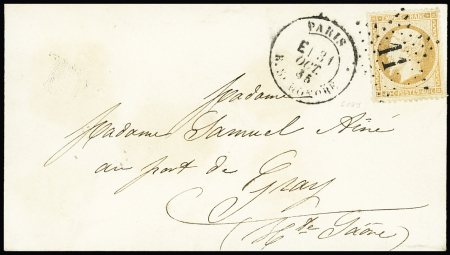 PARIS
E1 21
OCT
65
R. ST HONORE
11
Madame
Madame Samuel Aîné
au port de
Gray
Hte Saône